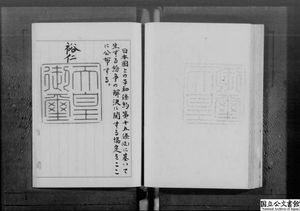 日本国との平和條約第十五條(a)に基いて
生ずる紛争の解決に関する協定をここ
に公布する。
裕仁
天皇
御璽
国立公文書館
National Archives of Japan